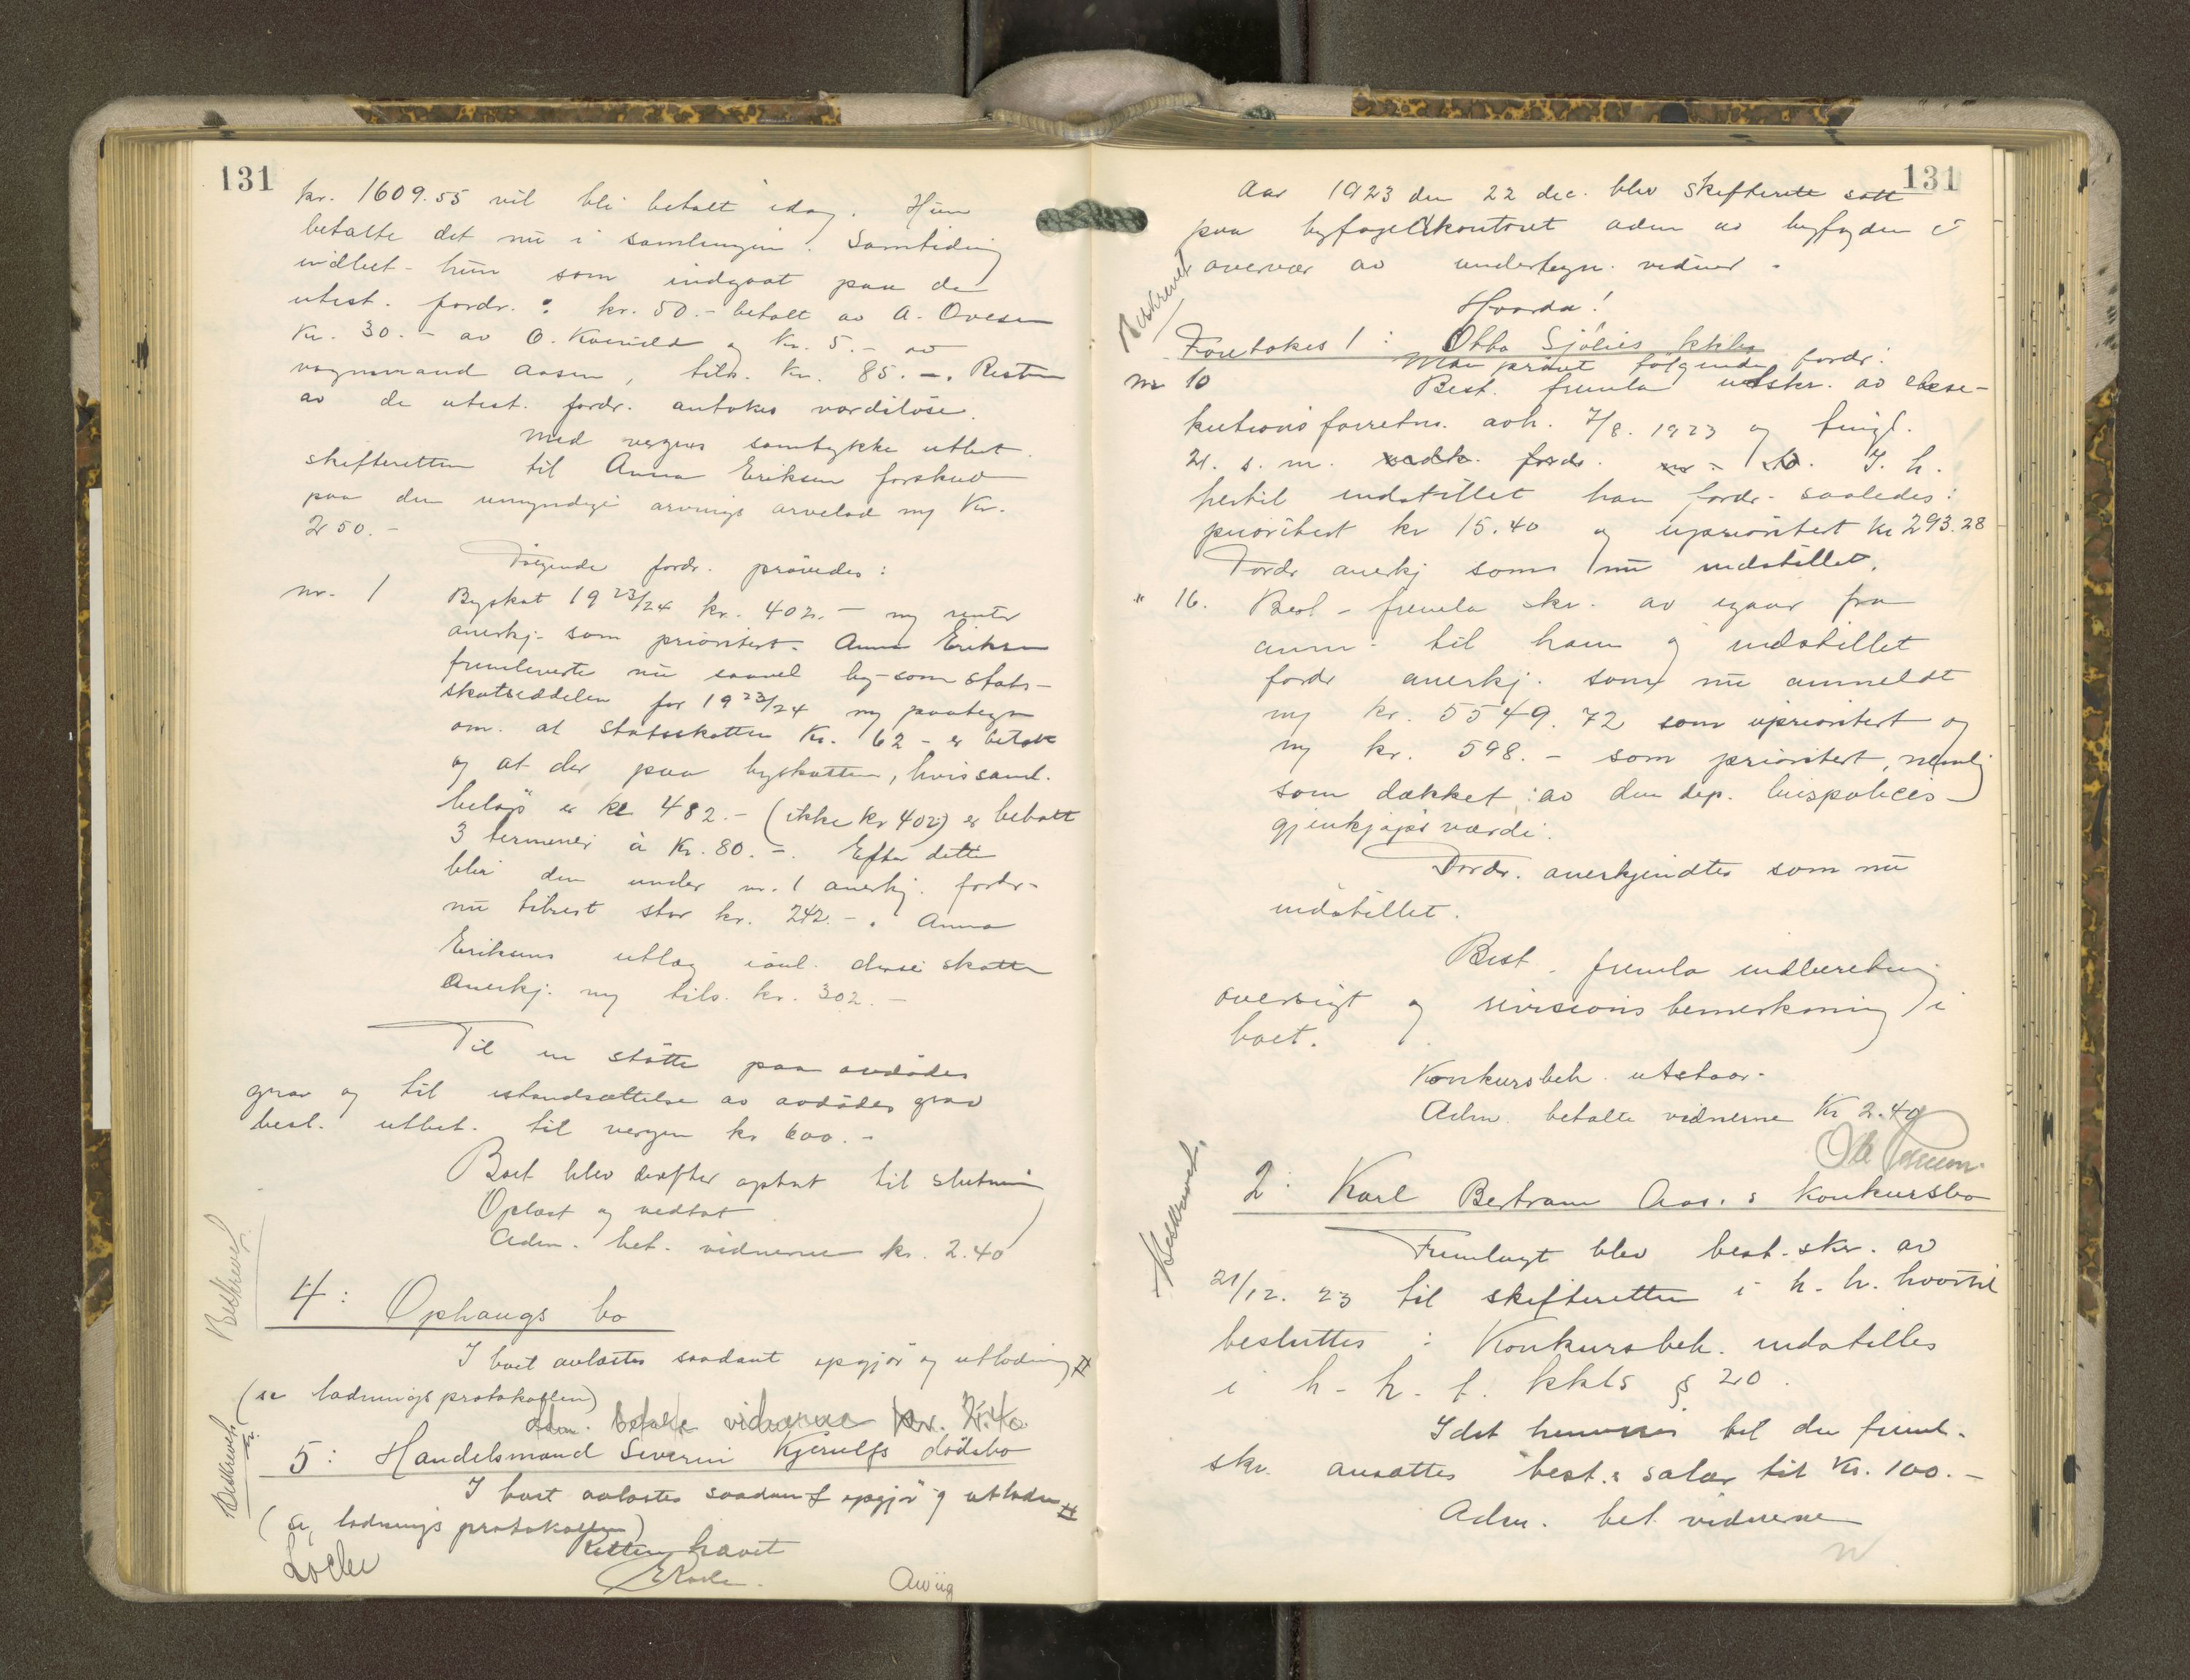 131
kr. 1609.55 vil bli betalt idag. Hun
betalte det nu i samlingen. Samtidig
indbet. hun som indgaat paa de
utest. fordr.: kr. 50.- betalt av A. Ovesen
Kr. 30.- av O. og Kr. 5.- av
vognmand Aasen, tils. Kr. 85.-. Resten
av de utest. fordr. antokes værdiløse.
Med verges samtykke utbet.
skifteretten til Anna Eriksen forskud
paa den umyndige arvings arvelod m/ Kr.
250.-
Følgende fordr. prøvedes:
nr. 1 Byskat 1923/24 kr. 402.- m/ renter
anerkj. som prioritert. Anna Eriksen
fremleverte nu saavel by- som stats-
skatseddelen for 1923/24 m/ paategn
om at statsskatten Kr. 62.- er betalt
og at der paa byskatten, hvis saml.
beløp er kr 482.- (ikke kr 402) er betalt
3 terminer à Kr. 80.-. Efter dette
blir den under nr. 1 anerkj. fordr.
nu tilrest stor kr. 242.-. Anna
Eriksens utlæg disse skatter
Anerkj. m/ tils. kr. 302.-
Til en støtte paa avdødes
grav og til istandsættelse av avdødes grav
besl. utbet. til vergen kr 600.-
Boet blev derefter optat til slutning
Oplæst og vedtat
Adm. bet. vidnerne kr. 2.40
Beskrevet.
4: Ophaugs bo
I boet avlastes saadant opgjør og utlodning #
(se lodningsprotokollen)
Adm. betalte vidnerne kr. 2.40
Beskrevet
5: Handelsmand Severin Kjerulfs dødsbo
I boet avlastes saadant opgjør og utlodn #
(se lodningsprotokollen)
Retten hævet
131
Aar 1923 den 22 dec. blev skifterett satt
paa byfogedkontoret adm av byfogden i
overvær av undertegn. vidner.
Hvorda!
Beskrevet
Foretokes 1: Otto Sjølies kkbo
Man prøvet følgende fordr:
nr 10 Best. fremla utskr. av ekse-
kutionsforretn. avh. 7/8. 1923 og tingl.
21. s. m. vedk. fordr. nr. 10. I h.
hertil indstillet han fordr. saaledes:
prioritert kr 15.40 og uprioritert kr 293.28
Fordr anerkj som nu indstillet.
" 16. Best. fremla skr. av igaar fra
anm. til ham og indstillet
fordr anerkj. som nu anmeldt
m/ kr. 5549.72 som uprioritert og
m/ kr. 598.- som prioritert, nemlig
som dækket av den dep. livspolices
gjenkjøpsværdi.
Fordr. anerkjendtes som nu
indstillet.
Best. fremla indberetning
oversigt og revisionsbemerkning i
boet.
Konkursbeh. utstaar.
Adm. betalte vidnerne Kr 2.40
Beskrevet.
2: Karl Bertram Aas.s konkursbo
Fremlagt blev best. skr. av
21/12. 23 til skifteretten i h. h. hvortil
besluttes: Konkursbeh. indstilles
i h. h. t. kkls § 20.
Idet henvises til den freml.
skr. ansattes best.s salær til Kr. 100.-
Adm. bet. vidnerne